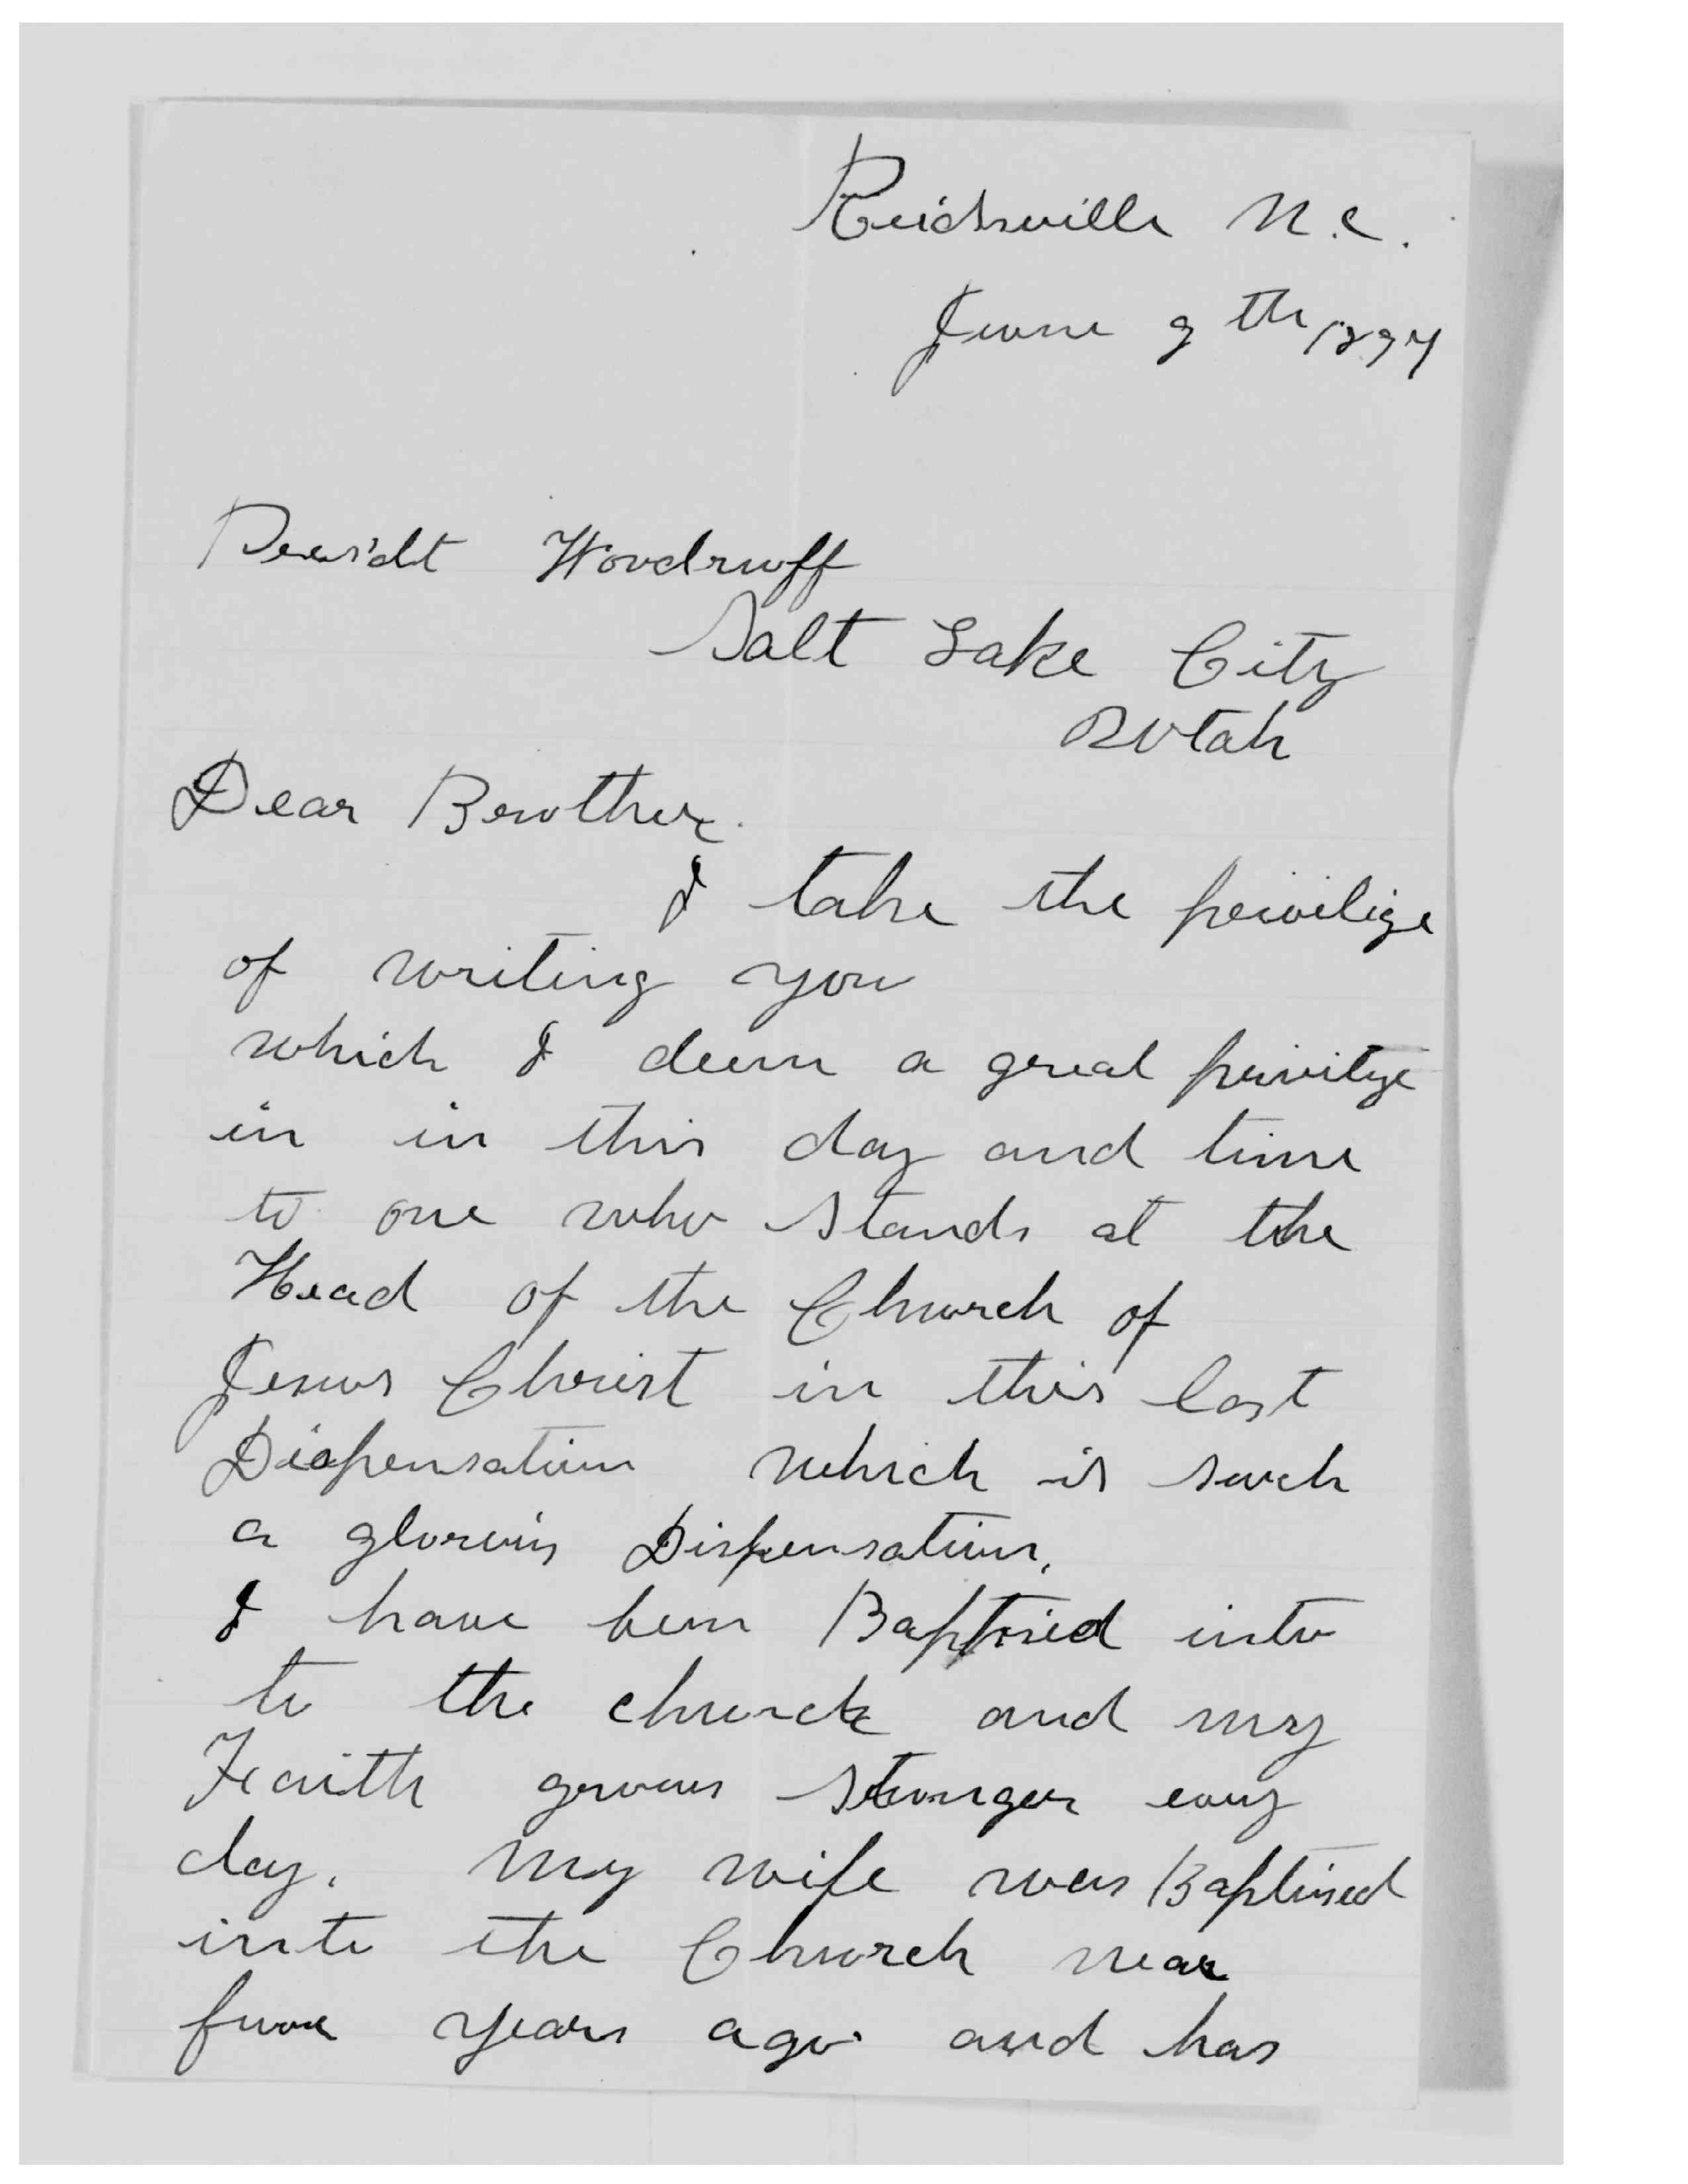 Reidsville N.C.
June 9th 1897
Presidt Woodruff
Salt Lake City
Utah
Dear Brother.
I take the privilige
of writing you
which I deem a great privilige
in in this day and time
to one who stands at the
Head of the Church of
Jesus Christ in this last
Dispensation which is such
a glorious Dispensation.
I have been Baptised into
to the church and my
Faith grows stronger every
day. My wife was Baptised
into the Church near
four years ago and has